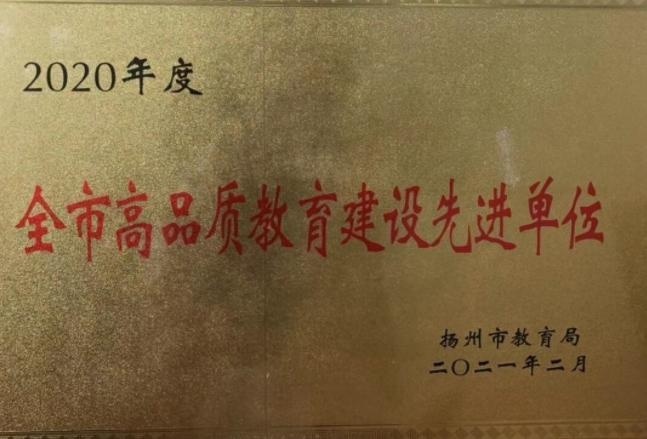 2020年度
全市高品质教育建设先进单位
扬州市教育局
二〇二一年二月